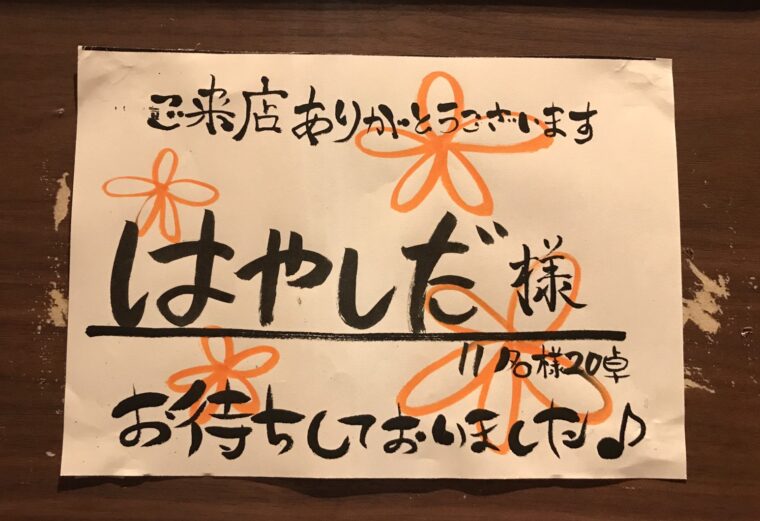 ご来店ありがとうございます
はやしだ様
11名様20卓
お待ちしておりました♪